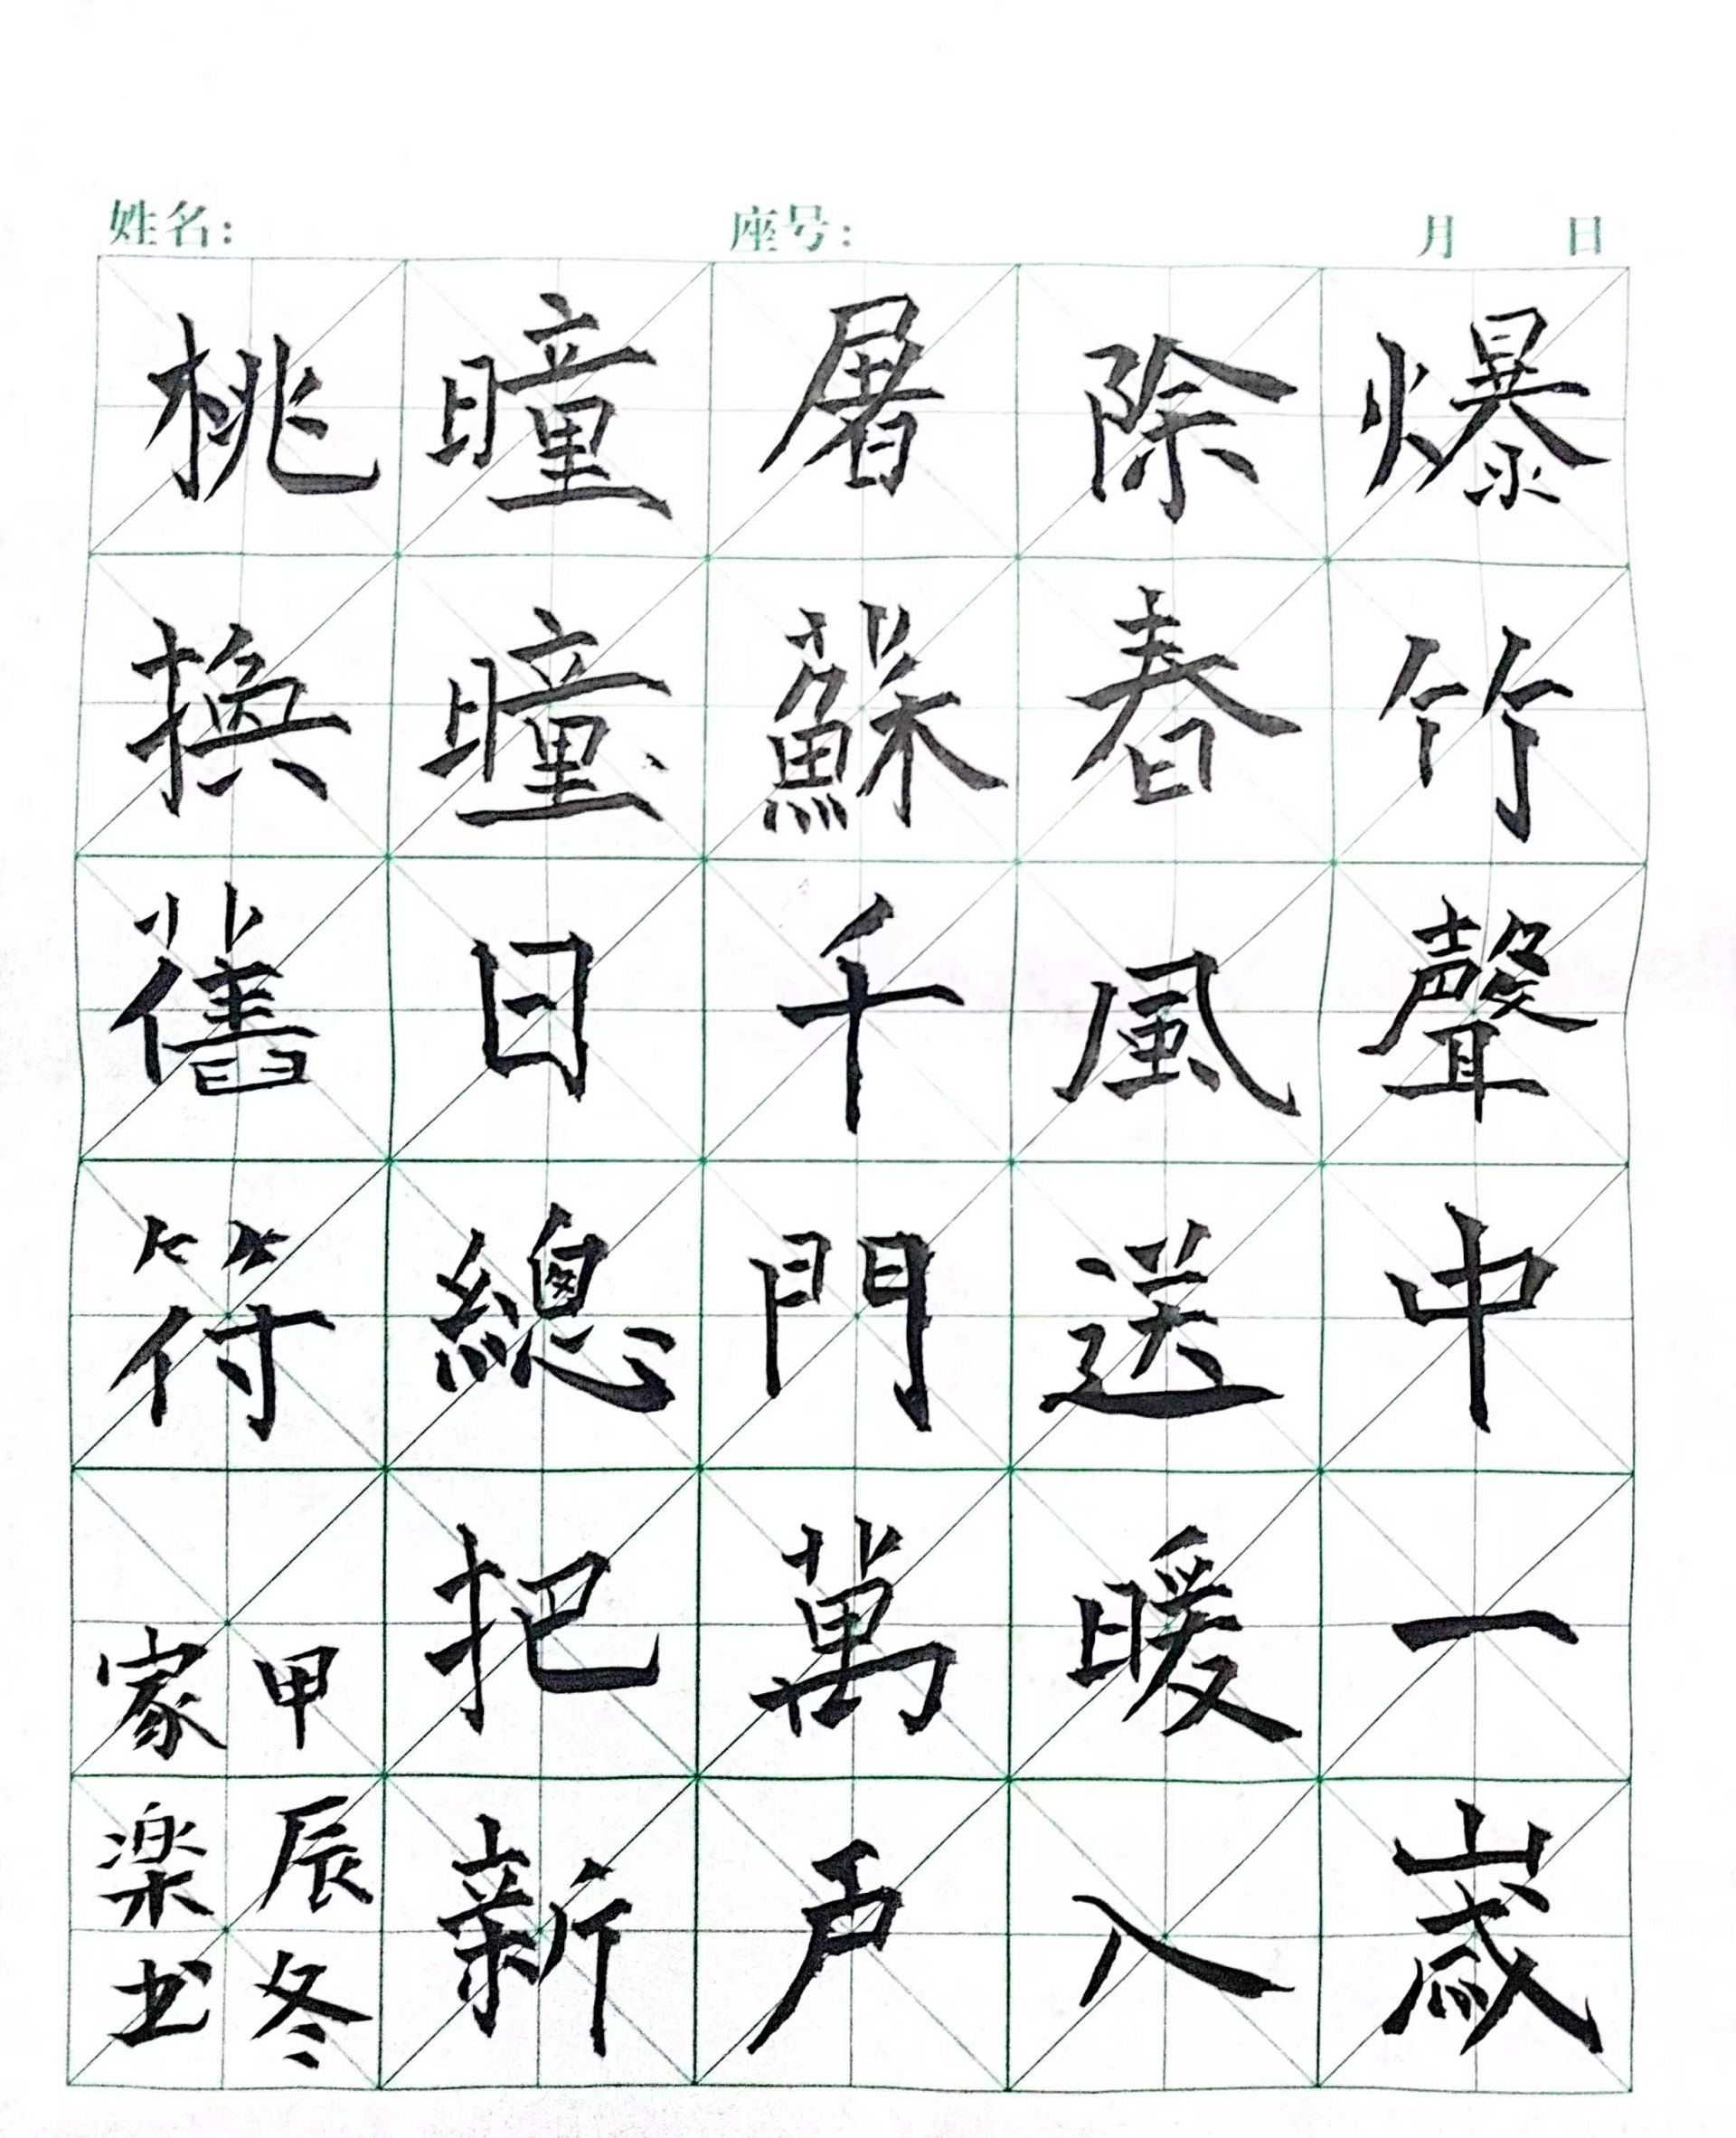 姓名： 座号： 月 日
爆竹聲中一歲
除春風送暖入
屠蘇千門萬户
曈曈日總把新
桃換舊符
甲辰冬
家楽书